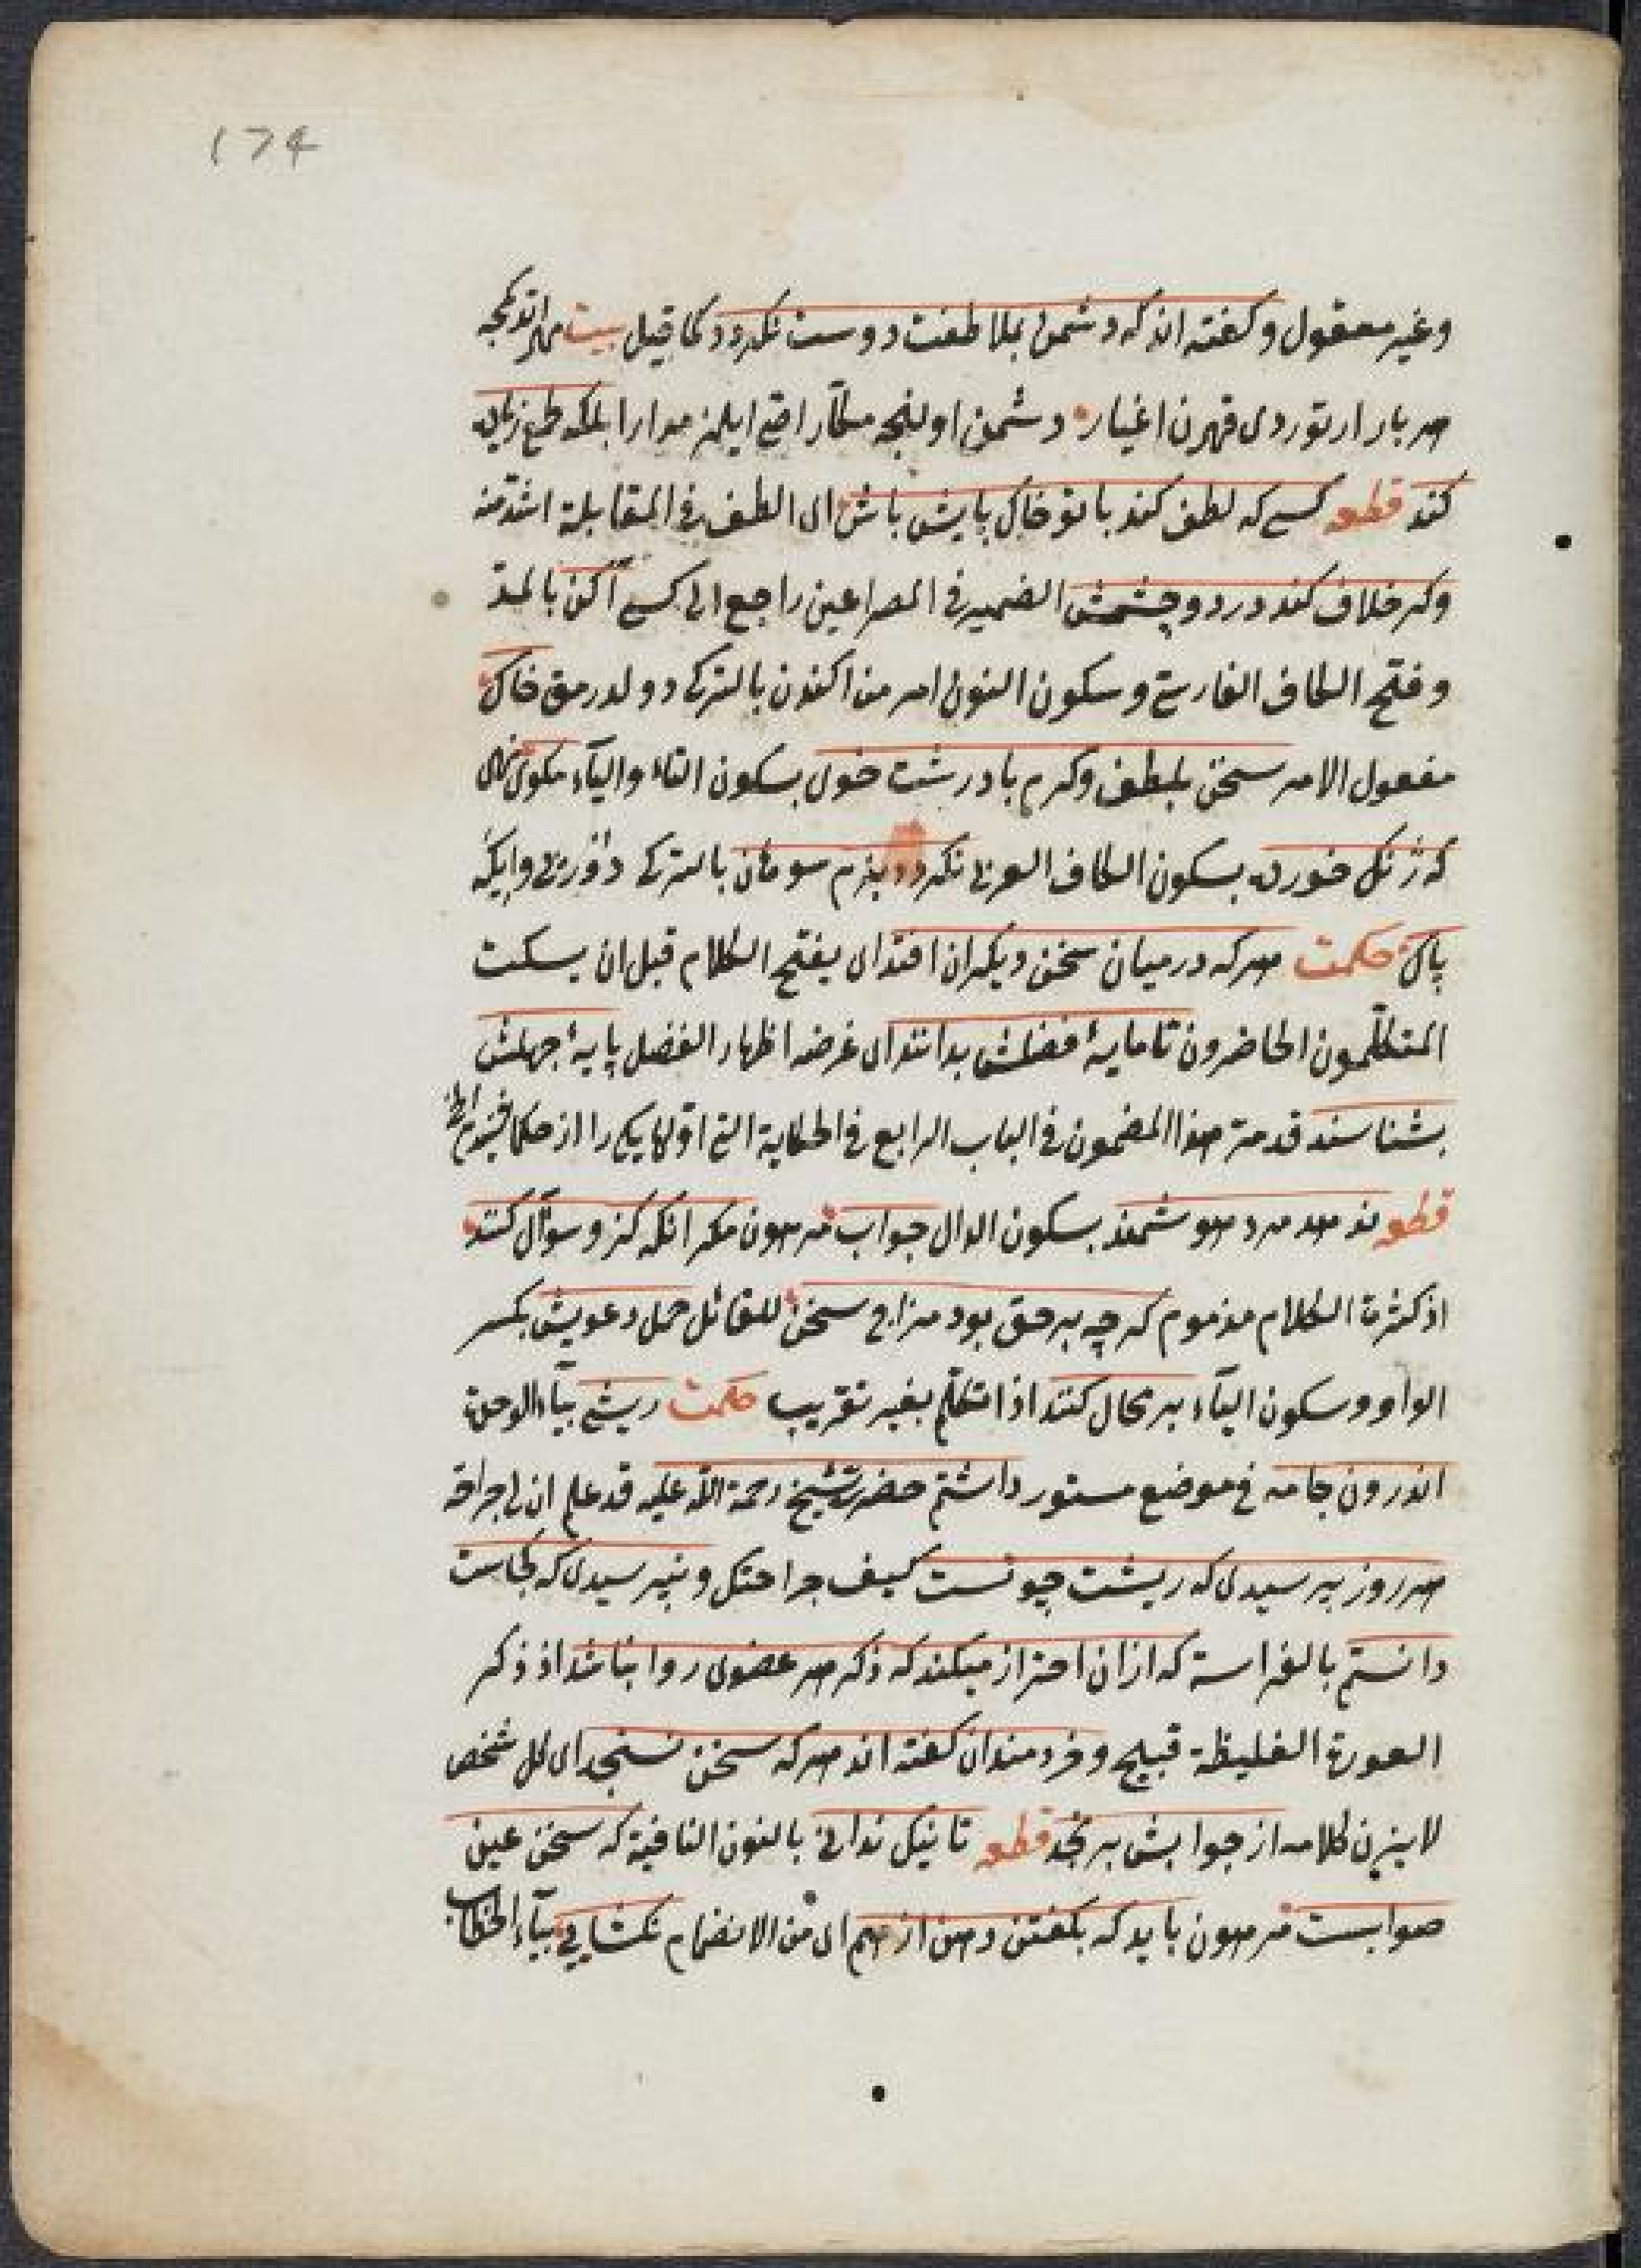 174
وغیر معقول و کفته اند که دشمن بملاطفت دوست نکردد کما قیل بیت
هر بار ارتوردی قهرن اغیار دشمن اولنجه مکار اضع ایلمز مدارا بلکه طمع زیاده
کند قطعه کسی که لطف کند با تو خاک پایش باش ای الطف فی المقابلة اشد منه
وکر خلاف کند در دو چشمش الضمیر فی المصراعین راجع الی کسی آکن بالمد
وفتح الکاف الفارسی وسکون النون امر من اکندن بالترکی دولدرمق خاک
مفعول الامر سخن بلطف وکرم با درشت خوی بسکون التاء والیاء مکوی نهی
که زنک خورده بسکون الکاف العربی نکردد بنرم سوهان بالترکی
پاک حکمت هر که در میان سخن دیکران افتد ای یفتح الکلام قبل ان یسکت
المتکلمون الحاضرون تا مایهٔ فضلش بدانند ای غرضه اظهار الفضل پایهٔ جهلش
بشناسند قد مر هذا المضمون فی الباب الرابع فی الحکایة التی اولها یکی را از حکما
قطعه ندهد مرد هوشمند بسکون الدال جواب مرهون مکر انکه کزو سوآل کنند
اذ کثرة الکلام مذموم کر چه بر حق بود مزاج سخن للقائل حمل دعویش بکسر
الواو وسکون الیاء بر محال کنند اذا تکلم بغیر تقریب حکمت ریشی بیاء الوحدة
اندرون جامه فی موضع مستور داشتم حضرت شیخ رحمة الله علیه قد علم ان لی جراحة
هر روز بپرسیدی که ریشت چونست کیف جراحتک ونپرسیدی که کجاست
دانستم بالفراسة که ازان احتراز میکند که ذکر هر عضوی روا نباشد اذ ذکر
العورة الغلیظة قبیح وخردمندان کفته اند هر که سخن نسنجد ای کل شخص
لا یزن کلامه از جوابش برنجد قطعه تا نیک ندانی بالنون النافیة که سخن عین
صوابست مرهون باید که بکفتن دهن از هم ای من الانضمام نکشایی بیاء الخطاب